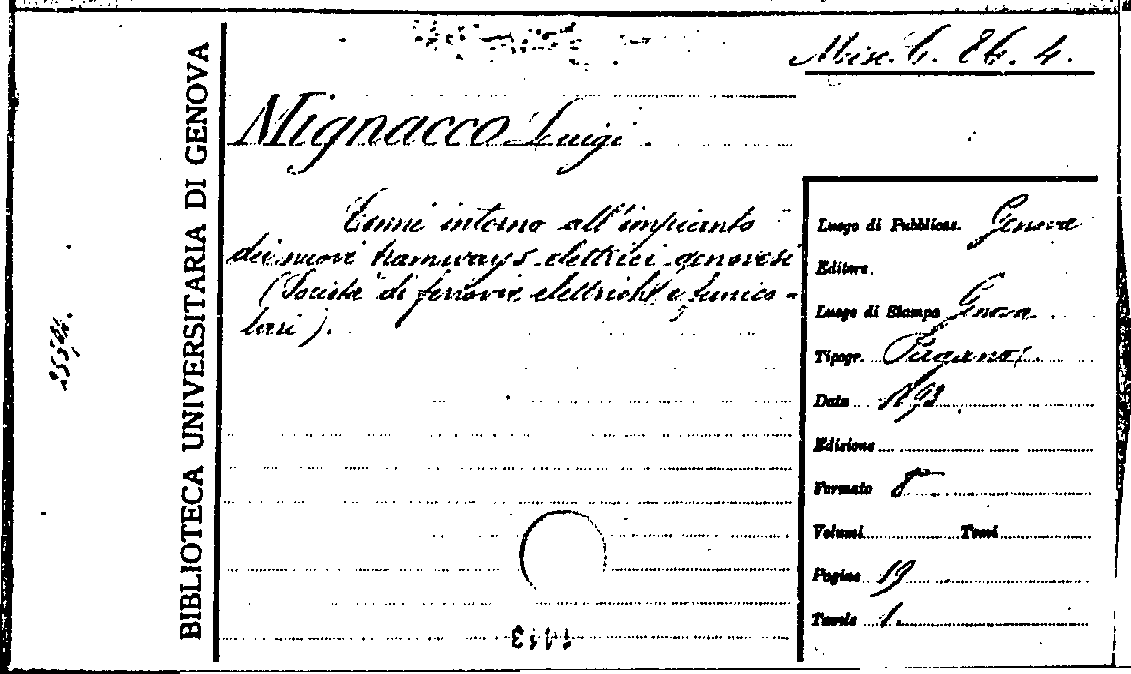 Misc. C. 86. 4.
BIBLIOTECA UNIVERSITARIA DI GENOVA
Mignacco Luigi.
Cenni intorno all'impianto
dei nuovi tramways elettrici genovesi
(Società di ferrovie elettriche e funico-
lari).
Luogo di Pubblicaz. Genova
Editore.
Luogo di Stampa Genova
Tipogr. Pagano,
Data 1893
Edizione
Formato 8°
Volumi Tomi
Pagine 19
Tavole 1.